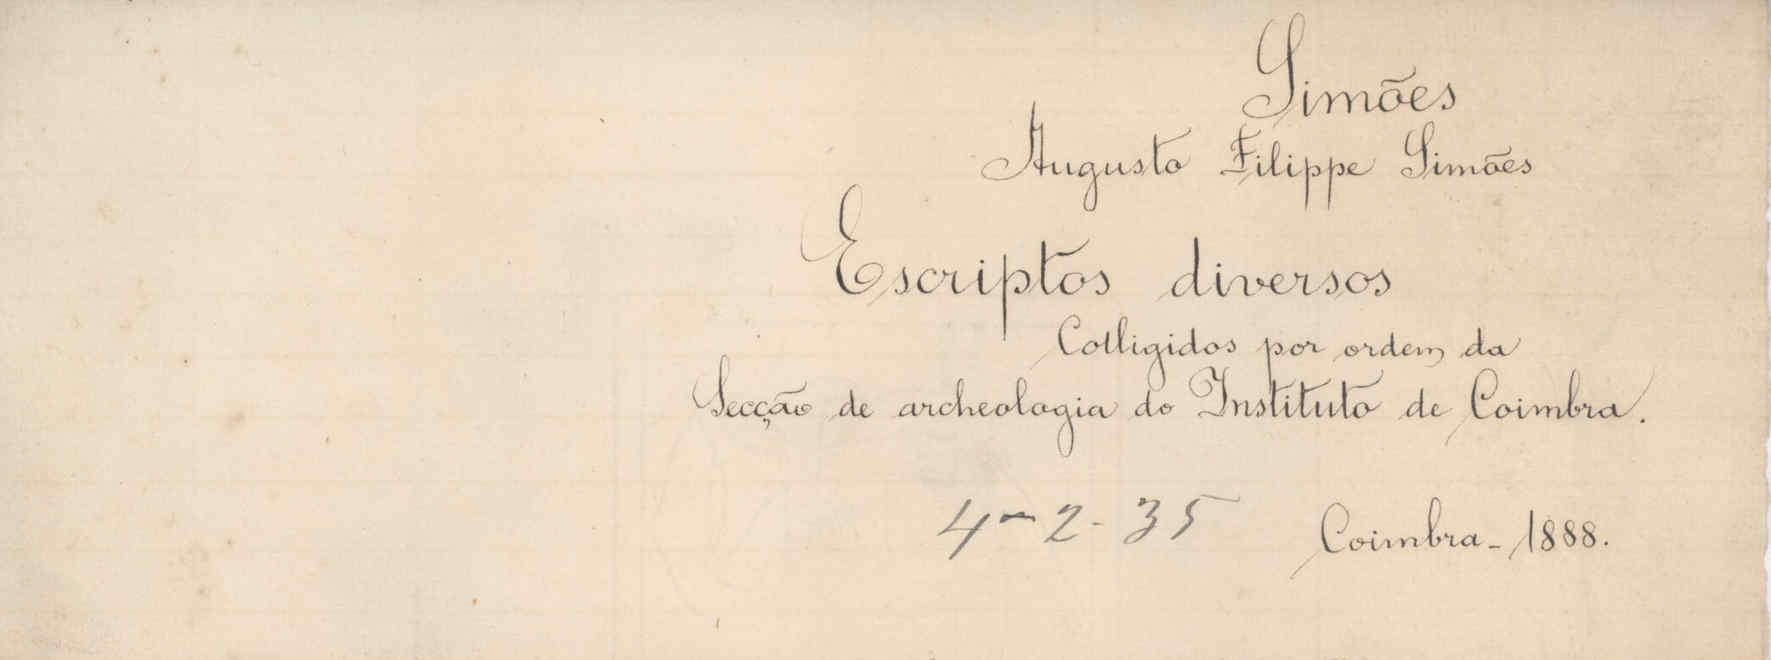 Simões
Augusto Filippe Simões
Escriptos diversos
Colligidos por ordem da
Secção de archeologia do Instituto de Coimbra.
4-2-35
Coimbra - 1888.